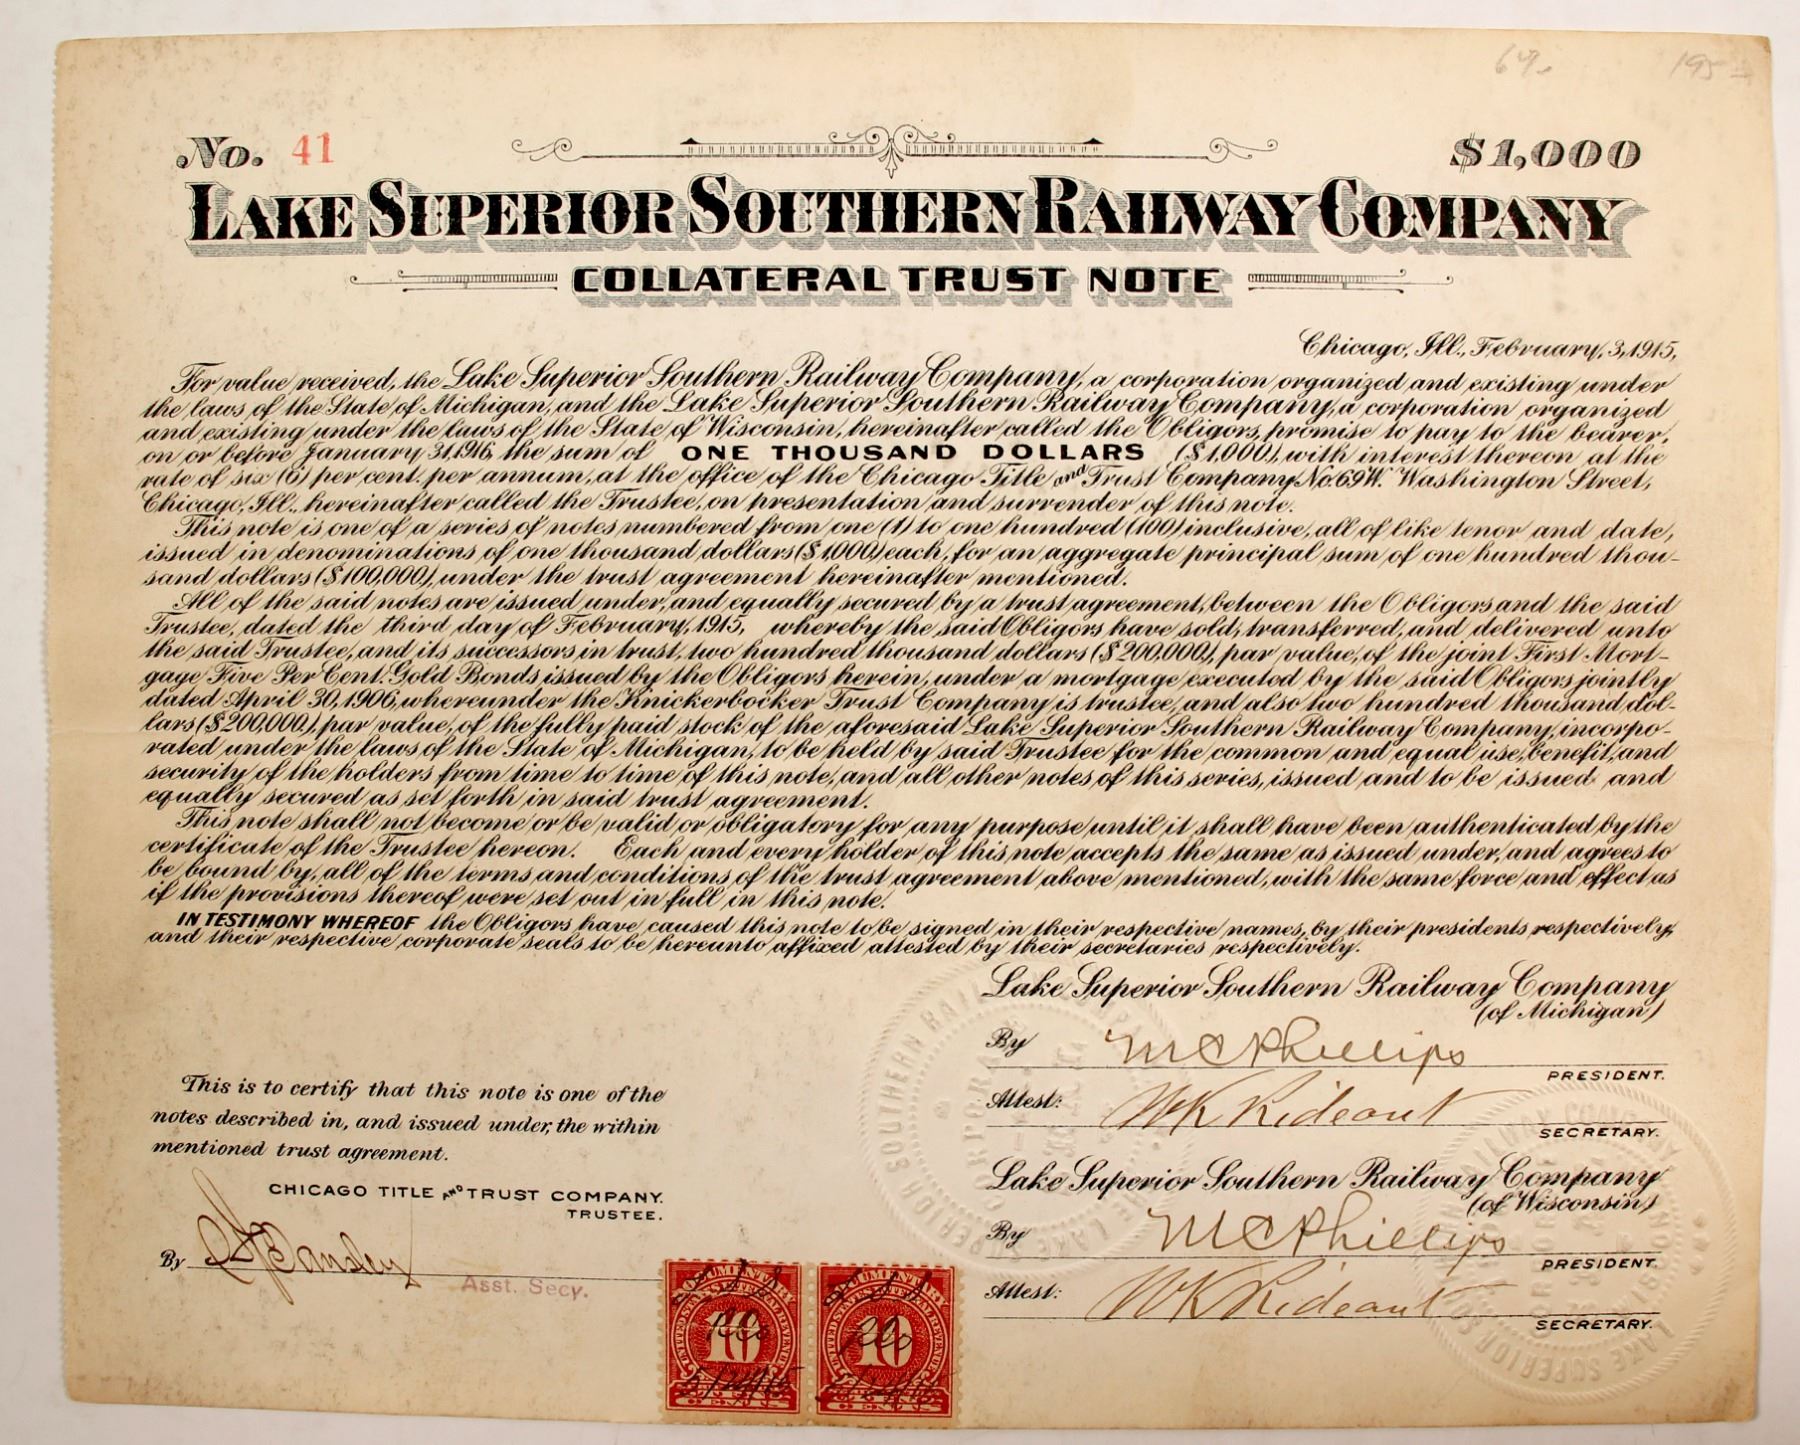 195
No. 41
$1,000
LAKE SUPERIOR SOUTHERN RAILWAY COMPANY
COLLATERAL TRUST NOTE
Chicago, Ill., February, 3, 1915,
For value received, the Lake Superior Southern Railway Company, a corporation organized and existing under
the laws of the State of Michigan, and the Lake Superior Southern Railway Company, a corporation organized
and existing under the laws of the State of Wisconsin, hereinafter called the Obligors, promise to pay to the bearer,
on or before January 31, 1916, the sum of ONE THOUSAND DOLLARS ($1,000), with interest thereon at the
rate of six (6) per cent. per annum, at the office of the Chicago Title and Trust Company, No. 69 W. Washington Street,
Chicago, Ill., hereinafter called the Trustee, on presentation and surrender of this note.
This note is one of a series of notes numbered from one (1) to one hundred (100) inclusive, all of like tenor and date,
issued in denominations of one thousand dollars ($1,000) each, for an aggregate principal sum of one hundred thou-
sand dollars ($100,000), under the trust agreement hereinafter mentioned.
All of the said notes are issued under, and equally secured by a trust agreement, between the Obligors and the said
Trustee, dated the third day of February, 1915, whereby the said Obligors have sold, transferred, and delivered unto
the said Trustee, and its successors in trust, two hundred thousand dollars ($200,000), par value, of the joint First Mort-
gage Five Per Cent. Gold Bonds issued by the Obligors herein, under a mortgage executed by the said Obligors jointly
dated April 30, 1906, whereunder the Knickerbocker Trust Company is trustee, and also two hundred thousand dol-
lars ($200,000), par value, of the fully paid stock of the aforesaid Lake Superior Southern Railway Company, incorpo-
rated under the laws of the State of Michigan, to be held by said Trustee for the common and equal use, benefit, and
security of the holders from time to time of this note, and all other notes of this series, issued and to be issued and
equally secured as set forth in said trust agreement.
This note shall not become or be valid or obligatory for any purpose until it shall have been authenticated by the
certificate of the Trustee hereon. Each and every holder of this note accepts the same as issued under, and agrees to
be bound by, all of the terms and conditions of the trust agreement above mentioned, with the same force and effect as
if the provisions thereof were set out in full in this note.
IN TESTIMONY WHEREOF the Obligors have caused this note to be signed in their respective names, by their presidents respectively,
and their respective corporate seals to be hereunto affixed attested by their secretaries respectively.
Lake Superior Southern Railway Company
(of Michigan)
By M C Phillips
PRESIDENT.
Attest: W K Rideout
SECRETARY.
Lake Superior Southern Railway Company
(of Wisconsin)
By M C Phillips
PRESIDENT.
Attest: W K Rideout
SECRETARY.
This is to certify that this note is one of the
notes described in, and issued under, the within
mentioned trust agreement.
CHICAGO TITLE AND TRUST COMPANY.
TRUSTEE.
By
Asst. Secy.
DOCUMENTARY
UNITED STATES INTERNAL REVENUE
10
CENTS
DOCUMENTARY
UNITED STATES INTERNAL REVENUE
10
CENTS